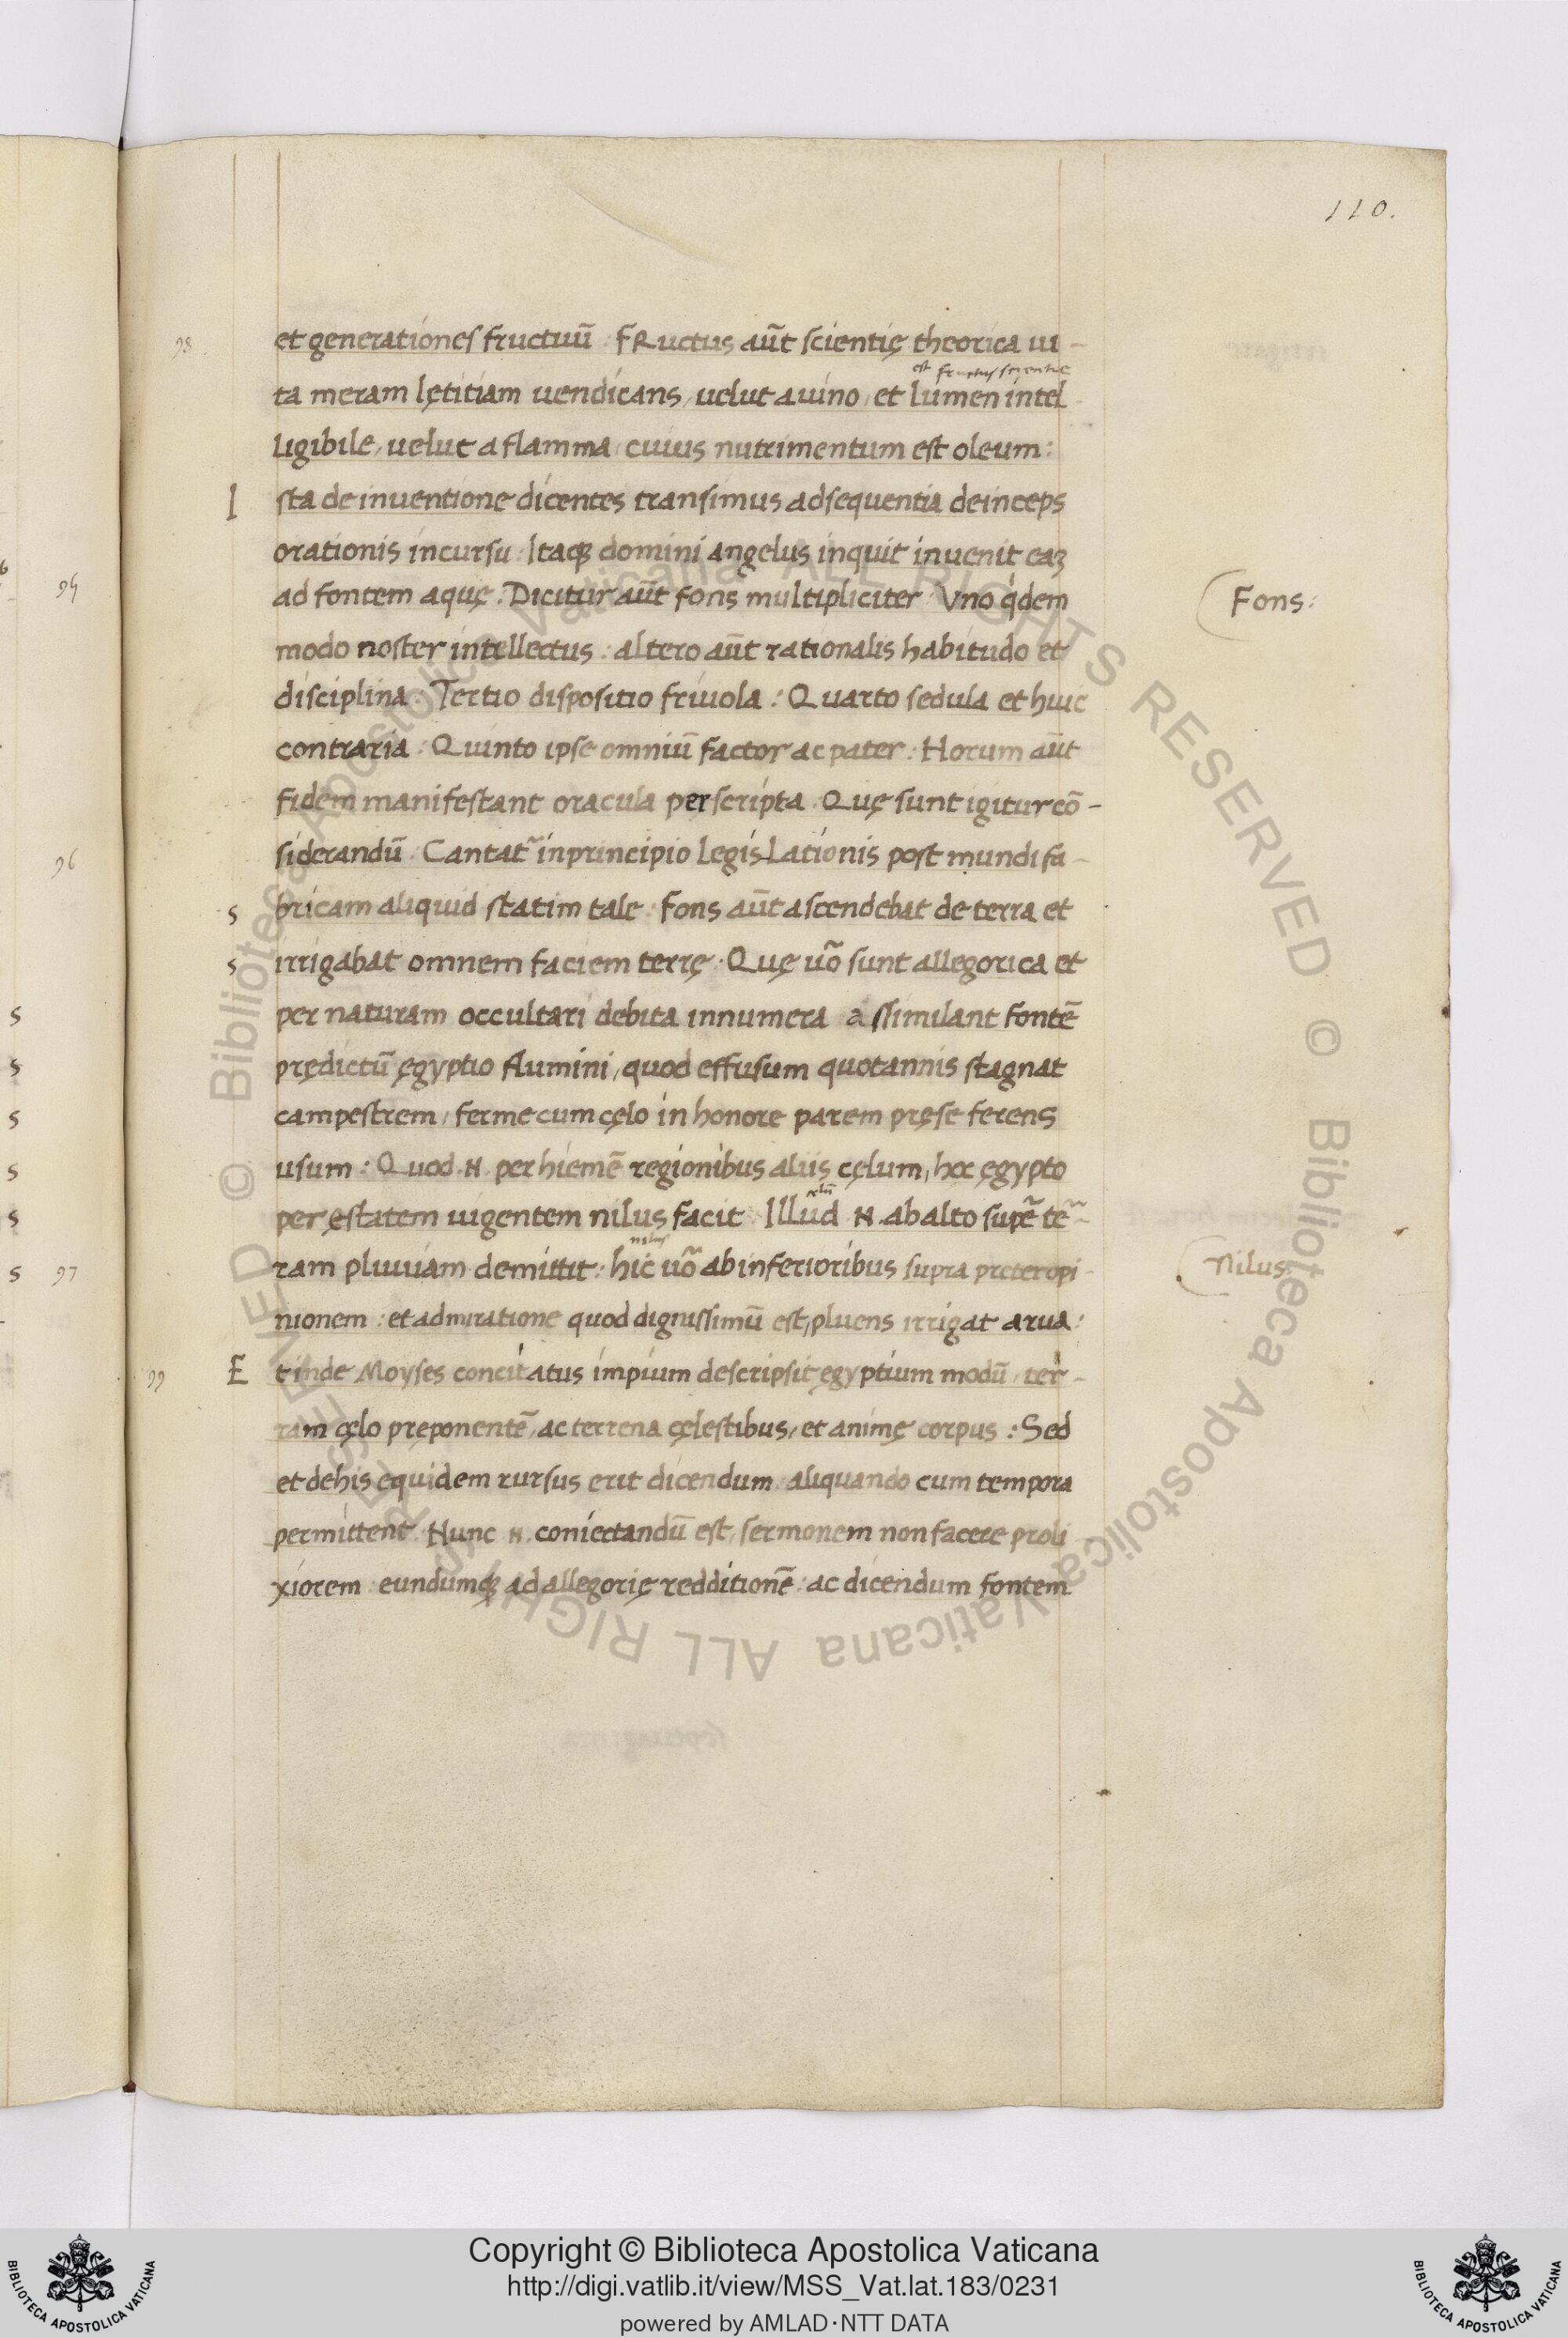 110.
93.
et generationes fructuū : FRuctus aūt scientię theorica ui-
est fructus scientie
ta meram lętitiam uendicans, uelut a uino, et lumen intel
ligibile, uelut a flamma, cuius nutrimentum est oleum:
I sta de inuentione dicentes transimus ad sequentia deinceps
orationis incursu : Itaqȝ domini angelus inquit inuenit eaȝ
ad fontem aquę : Dicitur aūt fons multipliciter : Vno q̇dem
Fons:
modo noster intellectus : altero aūt rationalis habitudo et
disciplina : Tertio dispositio friuola : Quarto sedula et huic
contraria : Quinto ipse omniū factor ac pater : Horum aūt
fidem manifestant oracula perscripta . Quę sunt igitur cō-
96
siderandū . Cantat̃ in principio legislationis post mundi fa-
s bricam aliquid statim tale : fons aūt ascendebat de terra et
s irrigabat omnem faciem terrę . Quę uõ sunt allegorica et
per naturam occultari debita innumera assimilant fontē
prędictū ęgyptio flumini, quod effusum quotannis stagnat
campestrem, ferme cum cęlo in honore parem pręse ferens
usum : Quod .N. per hiemē regionibus aliis cęlum, hoc ęgypto
per ęstatem uigentem nilus facit : Illud .N. ab alto supẽ tẽ-
nilus
97
ram pluuiam demittit : hic uõ ab inferioribus supra preteropi-
Nilus:
nionem : et admiratione quod dignissimū est, pluens irrigat arua:
99
E t inde Moyses concitatus impium descripsit ęgyptium modū, ter-
ram cęlo pręponentē, ac terrena cęlestibus, et animę corpus : Sed
et de his equidem rursus erit dicendum, aliquando cum tempora
permittent : Nunc .N. coniectandū est, sermonem non facere proli
xiorem : eundumqȝ ad allegorię redditionē : ac dicendum fontem
© Biblioteca Apostolica Vaticana ALL RIGHTS RESERVED © Biblioteca Apostolica Vaticana ALL RIGHTS RESERVED
Copyright © Biblioteca Apostolica Vaticana
http://digi.vatlib.it/view/MSS_Vat.lat.183/0231
powered by AMLAD·NTT DATA
BIBLIOTECA APOSTOLICA VATICANA
BIBLIOTECA APOSTOLICA VATICANA